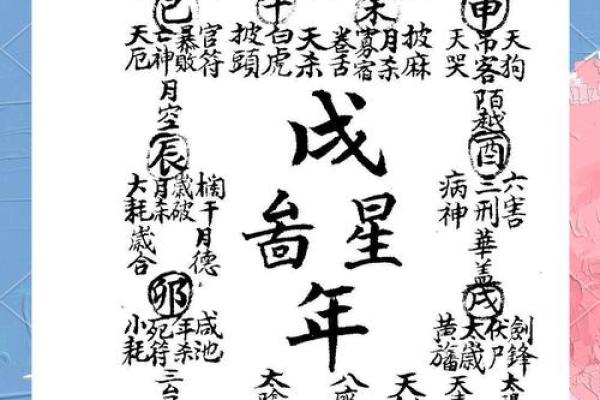 巳
午
未
申
天厄
亡神
暴敗
官符
月空
披頭
白虎
天杀
卷舌
寡宿
月杀
披麻
天哭
吊客
天狗
陌越
戌
星
啚
年
辰
大耗
月杀
歲破
欄干
歲合
月德
酉
病神
三刑
六害
華盖
卯
小耗
死符
年杀
咸池
戌
黄旛
太歲
伏尸
劍鋒